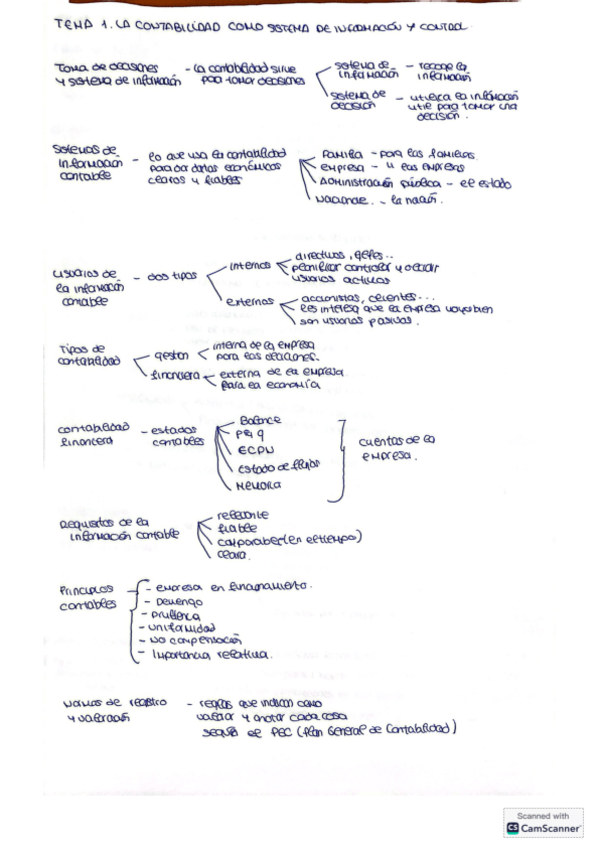 TEMA 1. LA CONTABILIDAD COMO SISTEMA DE INFORMACIÓN Y CONTROL
Toma de decisiones y sistema de información - la contabilidad sirve para tomar decisiones
sistema de información - recoge la información
sistema de decisión - utiliza la información útil para tomar una decisión.
Sistemas de información contable - lo que usa la contabilidad para dar datos económicos claros y fiables
Familia - para las familias.
empresa - u las empresas
Administración pública - el estado
Nacional. - la nación.
Usuarios de la información contable - dos tipos
internos
directivos, jefes..
planificar controlar y decidir
usuarios activos
externos
accionistas, clientes...
les interesa que la empresa vaya bien
son usuarios pasivos.
Tipos de contabilidad
gestión
interna de la empresa
para las decisiones.
financiera
externa de la empresa
para la economía
contabilidad financiera - estados contables
Balance
PyG
ECPN
Estado de flujos
Memoria
cuentas de la empresa.
Requisitos de la información contable
relevante
fiable
comparable (en el tiempo)
clara.
Principios contables
- empresa en funcionamiento.
- Devengo
- prudencia
- uniformidad
- No compensación
- Importancia relativa.
Normas de registro y valoración - reglas que indican como
valorar y anotar cada cosa
según el PGC (Plan General de Contabilidad)
Scanned with
CS CamScanner